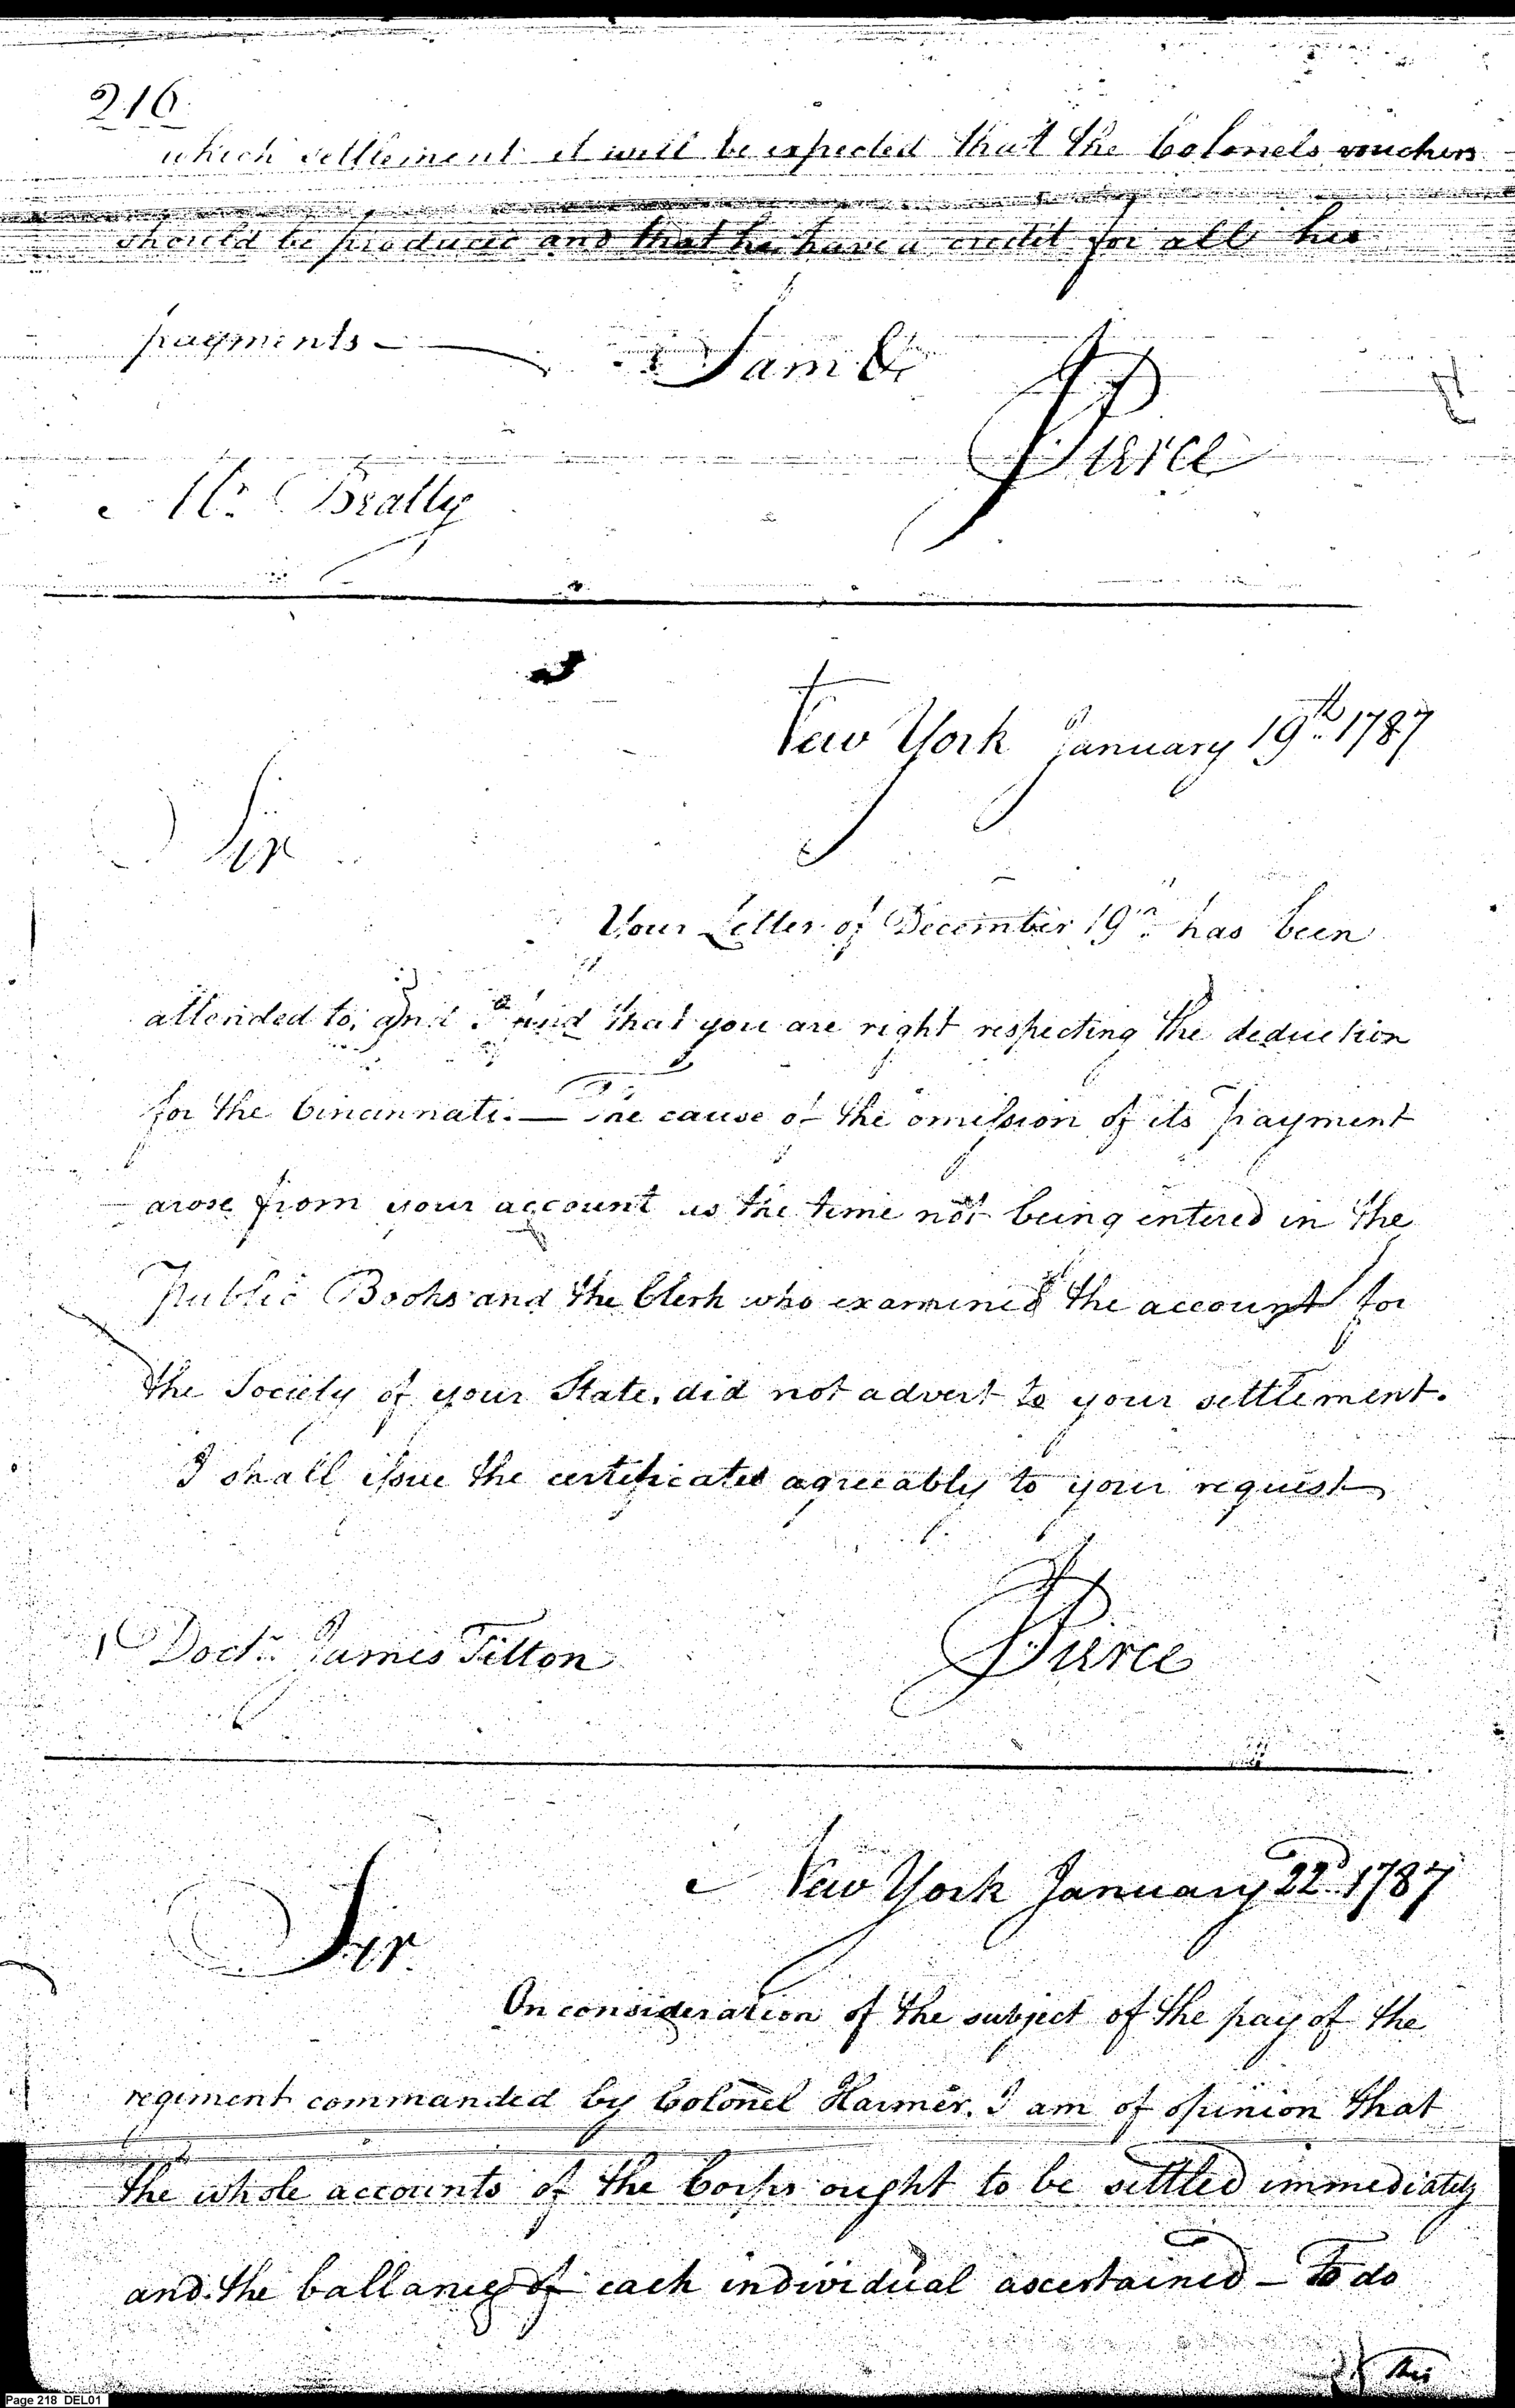 216
which settlement it will be expected that the Colonels vouchers
should be produced and that he have a credit for all his
payments —
I am &c
Pierce
Mr. Beatty
New York January 19th 1787
Sir
Your Letter of December 19th has been
attended to, and I find that you are right respecting the deduction
for the Cincinnati. — The cause of the omission of its payment
arose from your account at the time not being entered in the
Public Books and the Clerk who examined the account for
the Society of your State, did not advert to your settlement.
I shall issue the certificates agreeably to your request
Pierce
Doctr. James Tilton
New York January 22d. 1787
Sir
On consideration of the subject of the pay of the
regiment commanded by Colonel Harmer, I am of opinion that
the whole accounts of the Corps ought to be settled immediately
and the ballances of each individual ascertained — To do
this
Page 218 DEL01